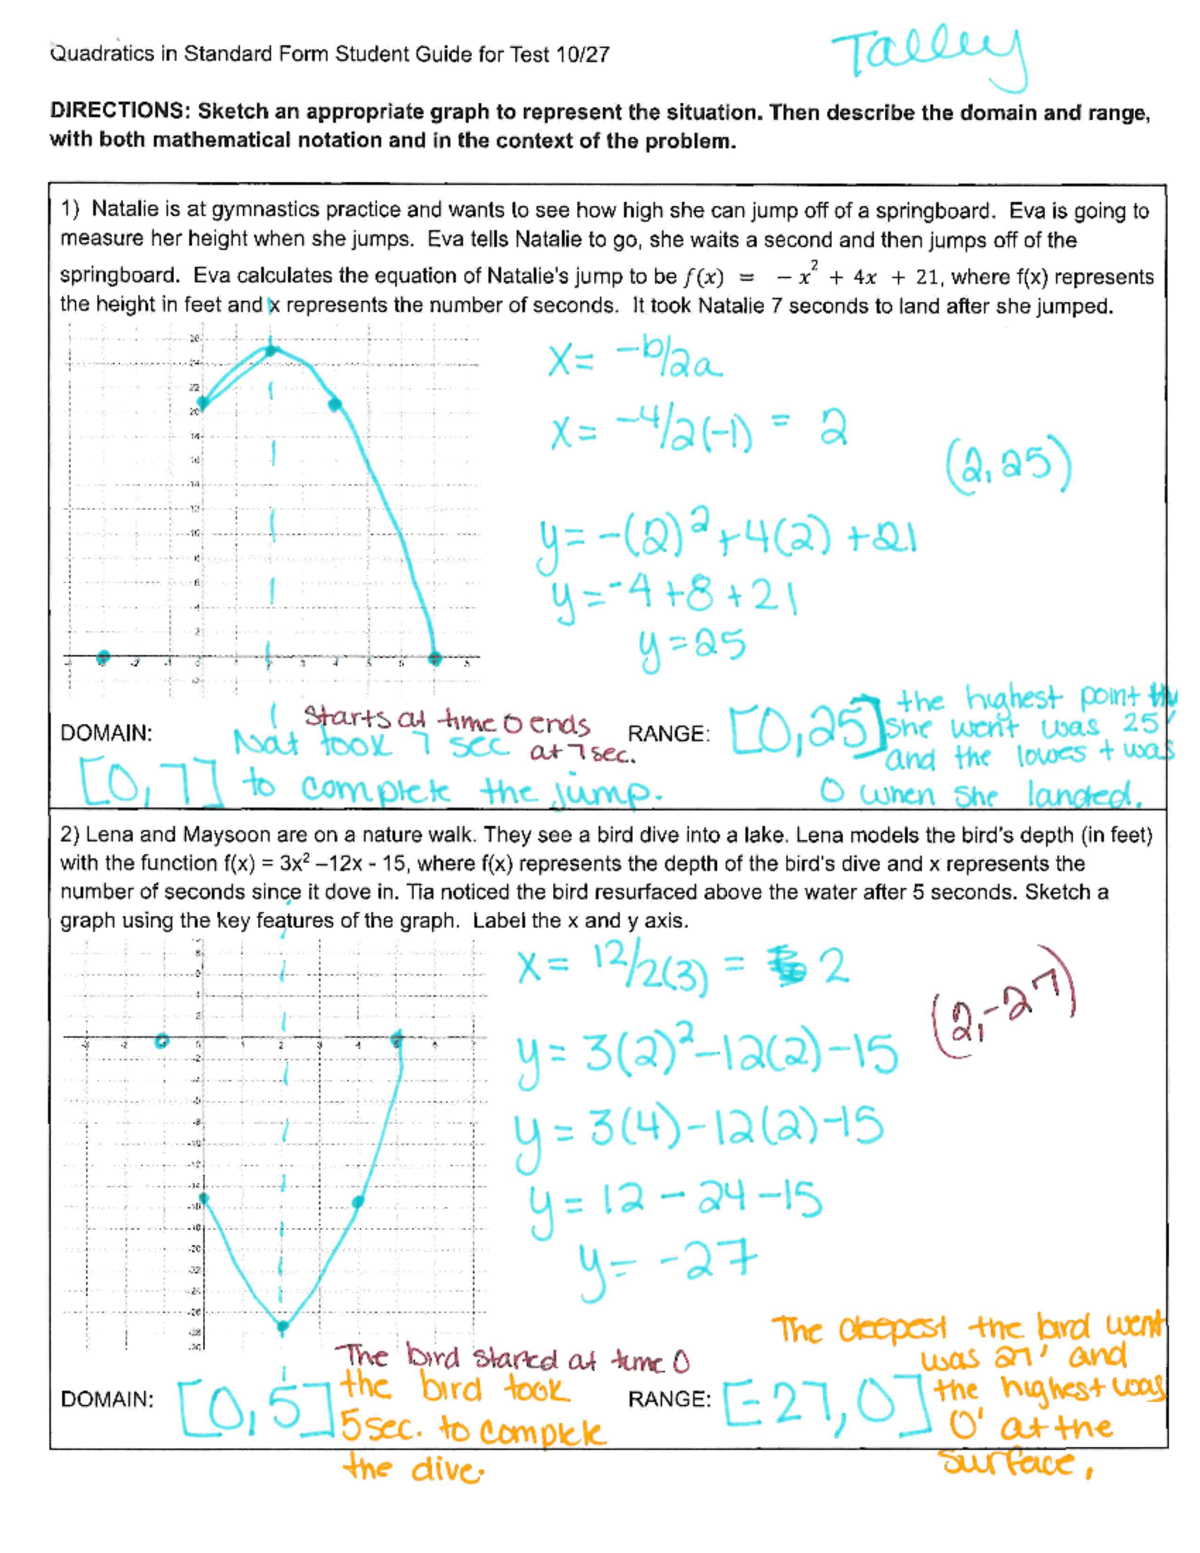 Quadratics in Standard Form Student Guide for Test 10/27
Talley
DIRECTIONS: Sketch an appropriate graph to represent the situation. Then describe the domain and range,
with both mathematical notation and in the context of the problem.
1) Natalie is at gymnastics practice and wants to see how high she can jump off of a springboard. Eva is going to
measure her height when she jumps. Eva tells Natalie to go, she waits a second and then jumps off of the
springboard. Eva calculates the equation of Natalie's jump to be f(x) = − x² + 4x + 21, where f(x) represents
the height in feet and x represents the number of seconds. It took Natalie 7 seconds to land after she jumped.
x= -b/2a
x= -4/2(-1) = 2
(2,25)
y= -(2)²+4(2)+21
y=-4+8+21
y=25
DOMAIN:
[0,7]
Starts at time 0 ends
at 7 sec.
Nat took 7 sec
to complete the jump.
RANGE:
[0,25]
the highest point
she went was 25'
and the lowest was
0 when she landed.
2) Lena and Maysoon are on a nature walk. They see a bird dive into a lake. Lena models the bird's depth (in feet)
with the function f(x) = 3x² –12x - 15, where f(x) represents the depth of the bird's dive and x represents the
number of seconds since it dove in. Tia noticed the bird resurfaced above the water after 5 seconds. Sketch a
graph using the key features of the graph. Label the x and y axis.
x= 12/2(3) = 2
(2,-27)
y= 3(2)²-12(2)-15
y= 3(4)-12(2)-15
y= 12-24-15
y= -27
DOMAIN:
[0,5]
The bird started at time 0
the bird took
5 sec. to complete
the dive.
RANGE:
[-27,0]
The deepest the bird went
was 27' and
the highest was
0' at the
surface,